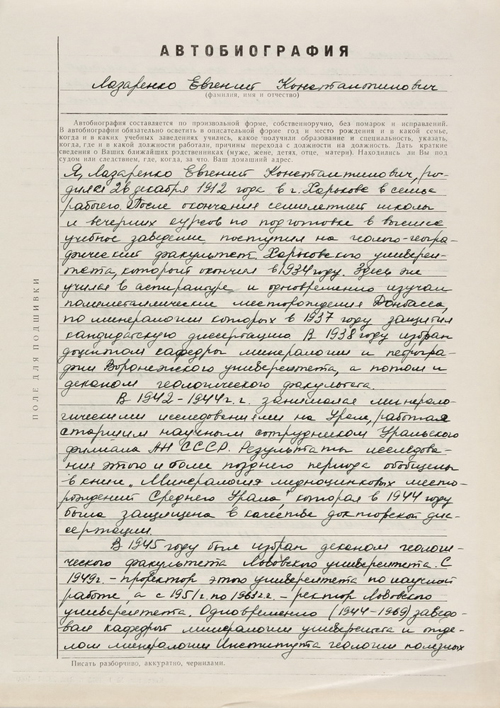 АВТОБИОГРАФИЯ
Лазаренко Евгений Константинович
(фамилия, имя и отчество)
Автобиография составляется по произвольной форме, собственноручно, без помарок и исправлений.
В автобиографии обязательно осветить в описательной форме год и место рождения и в какой семье,
когда и в каких учебных заведениях учились, какое получили образование и специальность, указать,
когда, где и в какой должности работали, причины перехода с должности на должность. Дать краткие
сведения о Ваших ближайших родственниках (муже, жене, детях, отце, матери). Находились ли Вы под
судом или следствием, где, когда, за что. Ваш домашний адрес.
Я, Лазаренко Евгений Константинович, ро-
дился 26 декабря 1912 года в г. Харькове в семье
рабочего. После окончания семилетней школы
и вечерних курсов по подготовке в высшее
учебное заведение поступил на геолого-геогра-
фический факультет Харьковского универси-
тета, который окончил в 1934 году. Здесь же
учился в аспирантуре и одновременно изучал
полиметаллические месторождения Донбасса,
по минералогии которых в 1937 году защитил
кандидатскую диссертацию. В 1938 году избран
доцентом кафедры минералогии и петрогра-
фии Воронежского университета, а потом и
деканом геологического факультета.
В 1942–1944 г.г. занимался минерало-
гическими исследованиями на Урале, работая
старшим научным сотрудником Уральского
филиала АН СССР. Результаты исследова-
ния этого и более позднего периода обобщены
в книге „Минералогия медноцинковых место-
рождений Среднего Урала", которая в 1944 году
была защищена в качестве докторской дис-
сертации.
В 1945 году был избран деканом геологи-
ческого факультета Львовского университета. С
1949г. – проректор этого университета по научной
работе а с 1951г. по 1963г. – ректор Львовского
университета. Одновременно (1944–1969) заведо-
вал кафедрой минералогии университета и отде-
лом минералогии Института геологии полезных
Писать разборчиво, аккуратно, чернилами.
ПОЛЕ ДЛЯ ПОДШИВКИ